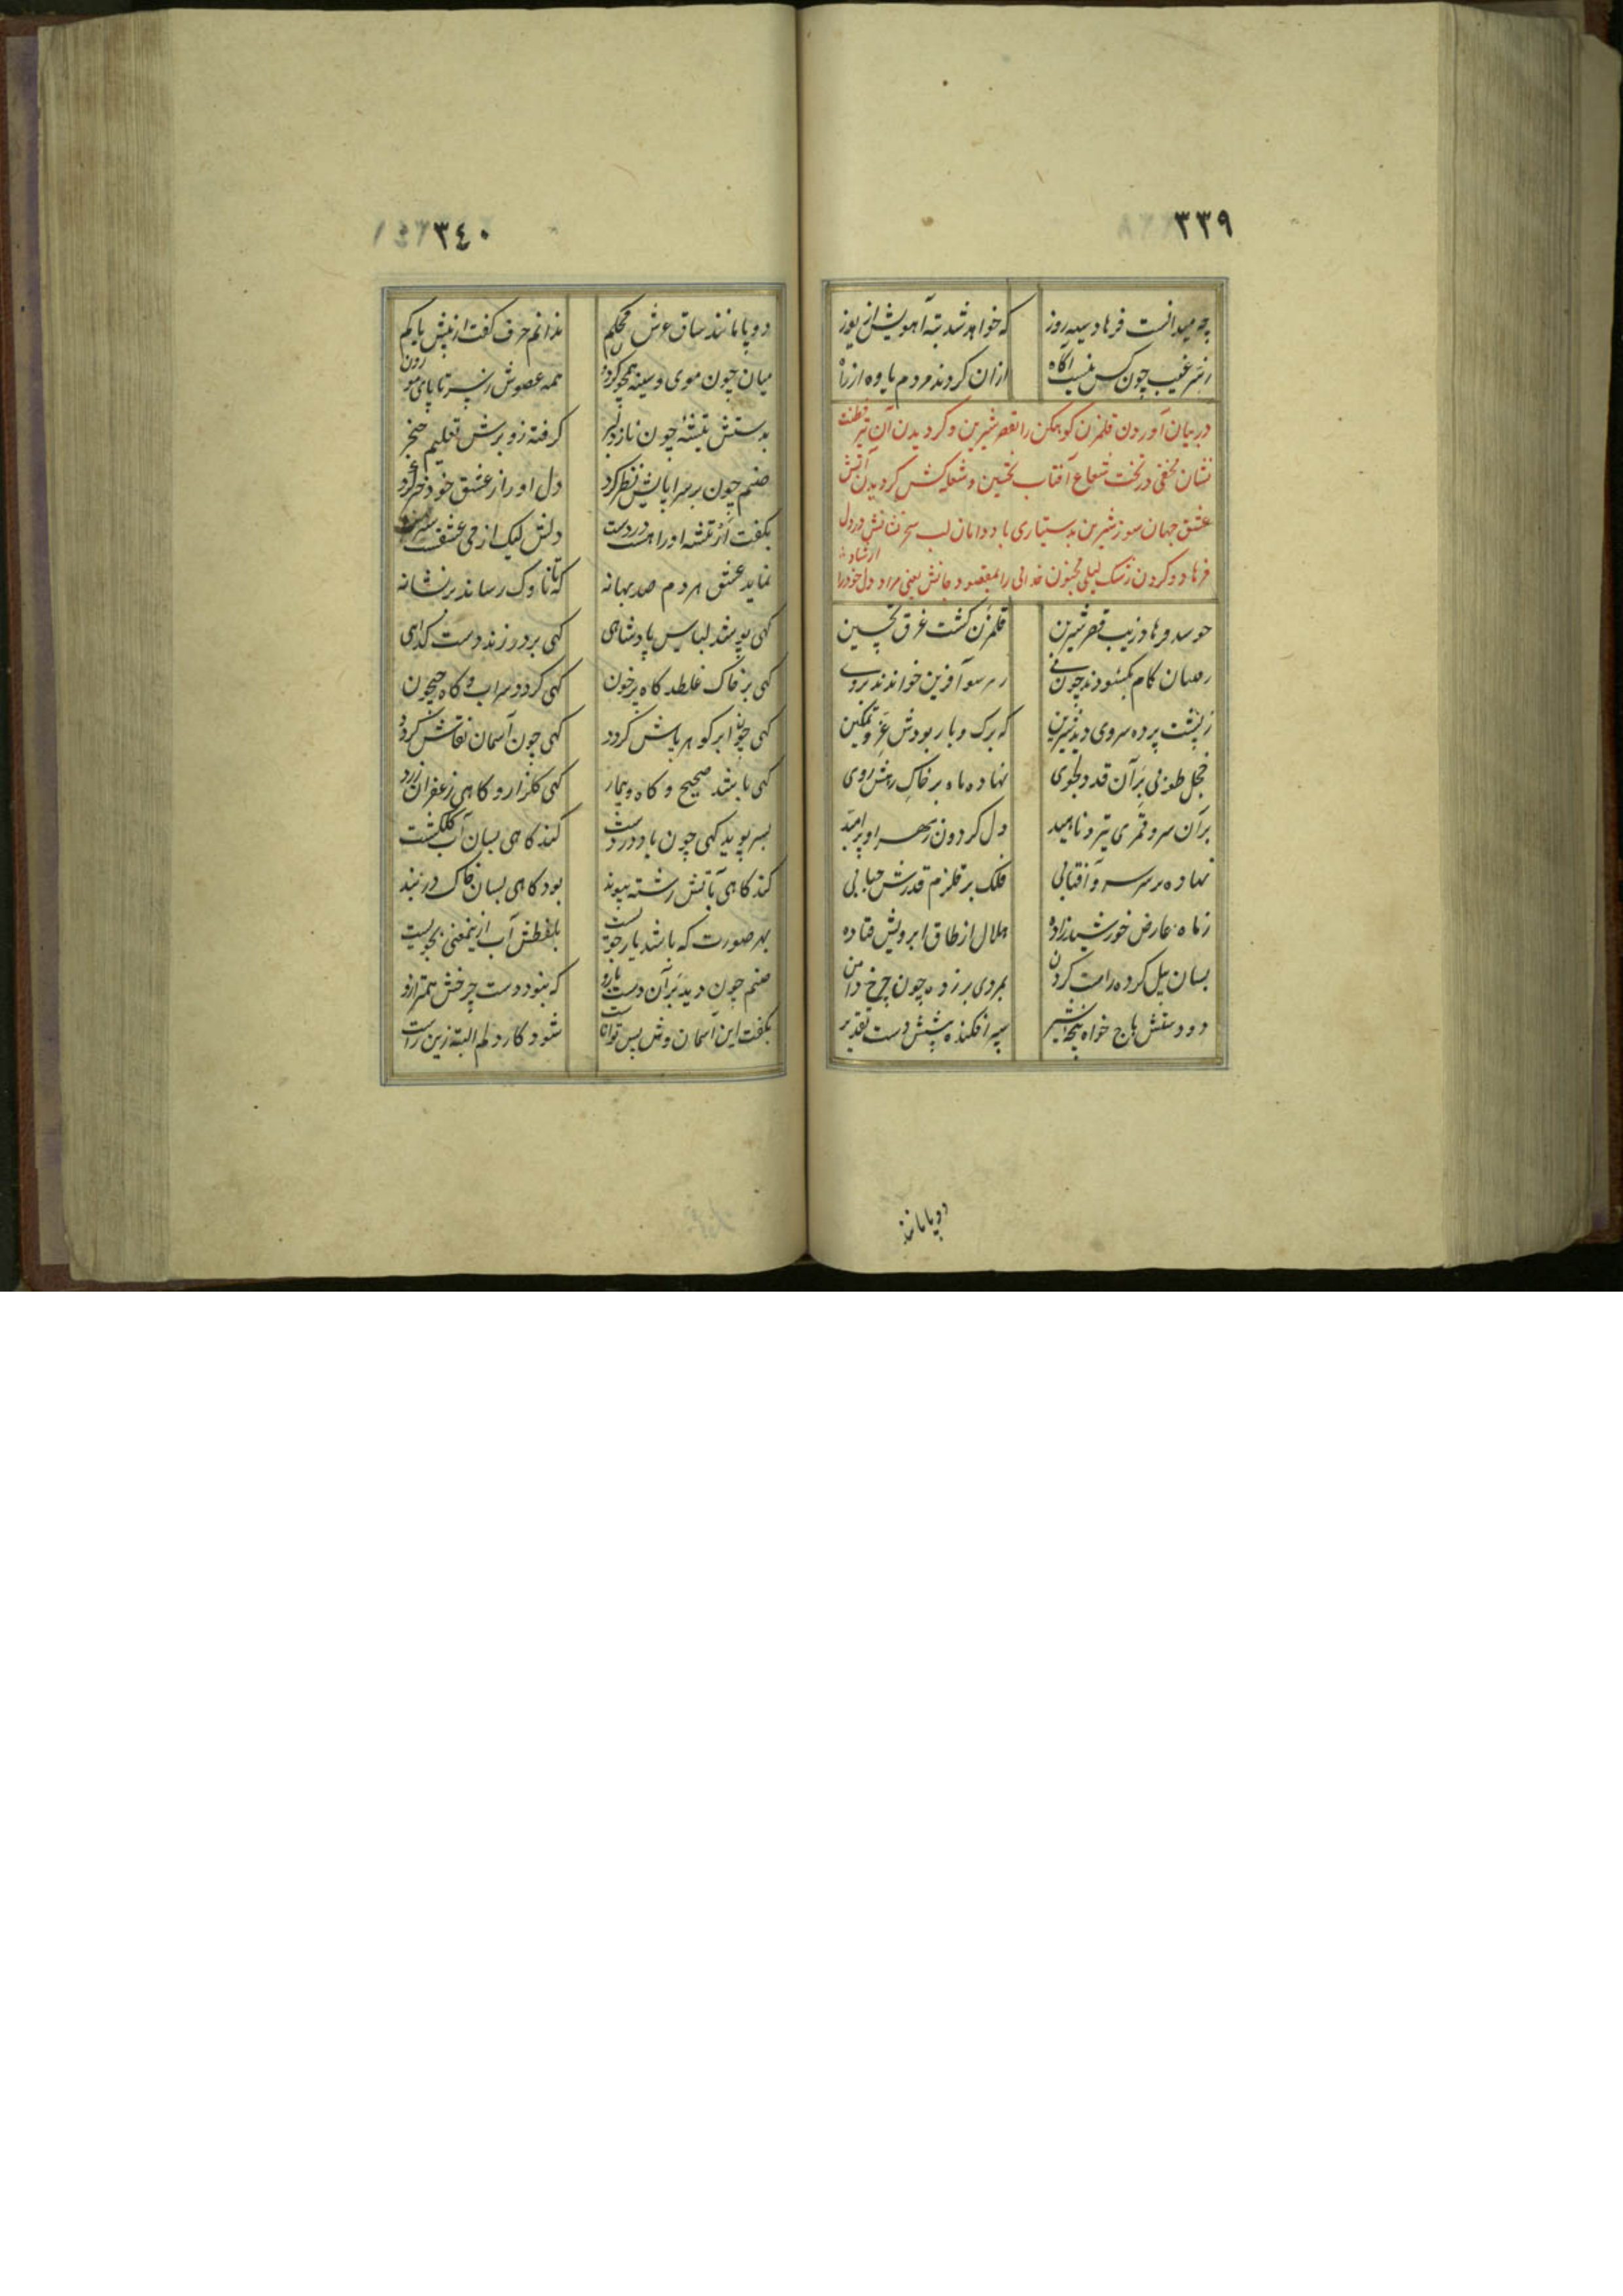 ٣٣٩
چه میدانست فرهاد سیه روز
که خواهد شد بته آهویش از یوز
ز سر غیب چون کس نیست آگاه
ازان کردند مردم یاوه از راه
در بیان آوردن قلمزن کوهکن را بقصر شیرین و کردیدن آن تیر فطنت
نشان مخفی در تحت شعاع آفتاب تحسین و شعله کش کردیدن آتش
عشق جهان سوز شیرین بدستیاری باد دامان لب سخر نشانش در دل
فرهاد و کردن رشک لیلی مجنون خدائی را بمقصود جانش یعنی مراد دل خود را ارشاد
چو شد فرهاد زیب قصر شیرین
قلمزن کشت غرق تحسین
کام بکشودند چون نی
ز هر سو آفرین خواندند بر وی
ز پشت پرده سروی دید شیرین
که برک و بار بودش عز و تمکین
خجل طوبی بر آن قد دلجوی
نهاده ماه بر خاک رهش روی
بر آن سرو قمری تیر و ناهید
دل کردون ز مهر او پر امید
نهاده بر سر سرو آفتابی
فلک بر قلزم قدرش حبابی
ز ماه عارض خورشید زاده
هلال از طاق ابرویش فتاده
بسان پیل کرده راست کردن
بمردی بر زده چون چرخ دامن
دو دستش باج خواه پنجه شیر
سپر افکنده پیشش دست تقدیر
دو پا مانند
٣٤٠
دو پا مانند ساق عرش محکم
ندانم حرف کفت از پیش یا کم
میان چون موی و سینه همچو کردون
همه عضوش ز سر تا پای موزون
بدستش تیشهٔ چون ناز دلبر
کرفته زو برش تعلیم خنجر
صنم چون بر سراپایش نظر کرد
دل او را ز عشق خود خبر کرد
بکفت ار تیشه او را هست در دست
دلش لیک از می عشقست سرمست
نماید عشق هر دم صد بهانه
که تا ناوک رساند بر نشانه
کهی پوشد لباس پادشاهی
کهی بر در زند دست کدایی
کهی بر خاک غلطد کاه بر خون
کهی کردد سراب و کاه جیحون
کهی چون ابر کوهر پاش کردد
کهی چون آسمان نقاش کردد
کهی باشد صحیح و کاه بیمار
کهی کلزار و کاهی زعفران زار
بسر پوید کهی چون باد در دشت
کند کاهی بسان آب کلکشت
کند کاهی بآتش رشته پیوند
بود کاهی بسان خاک در بند
بهر صورت که باشد یار جویست
بلفظش آب ازینمعنی بجویست
صنم چون دید بر آن دست و بازو
که نبود دست چرخش همترازو
بکفت این آسمان وش بس تواناست
شود کار دلم البته زین راست